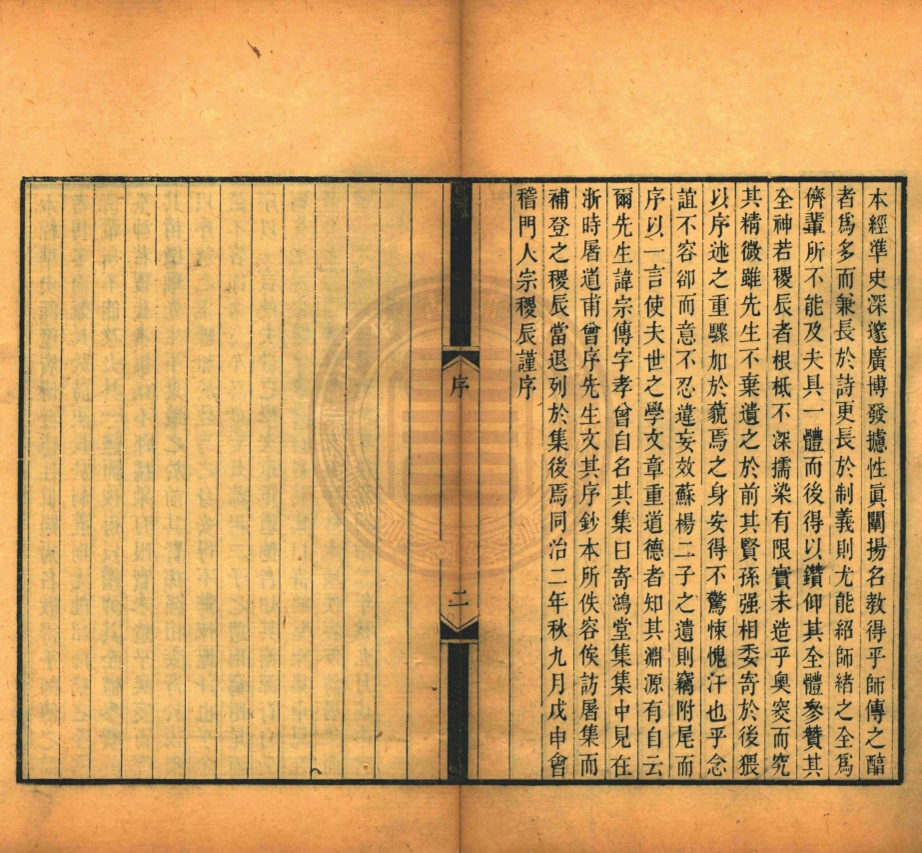 本經準史深邃廣博發攄性眞闡揚名教得乎師傳之醅
者爲多而兼長於詩更長於制義則尤能紹師緒之全爲
儕輩所不能及夫具一體而後得以鑽仰其全體參贊其
全神若稷辰者根柢不深擩染有限實未造乎奧窔而究
其精微雖先生不棄遺之於前其賢孫强相委寄於後猥
以序述之重驟加於藐焉之身安得不驚悚愧汗也乎念
誼不容卻而意不忍違妄效蘇楊二子之遺則竊附尾而
序以一言使夫世之學文章重道德者知其淵源有自云
爾先生諱宗傳字孝曾自名其集曰寄鴻堂集集中見在
浙時屠道甫曾序先生文其序鈔本所佚容俟訪屠集而
補登之稷辰當退列於集後焉同治二年秋九月戊申會
稽門人宗稷辰謹序
序
二